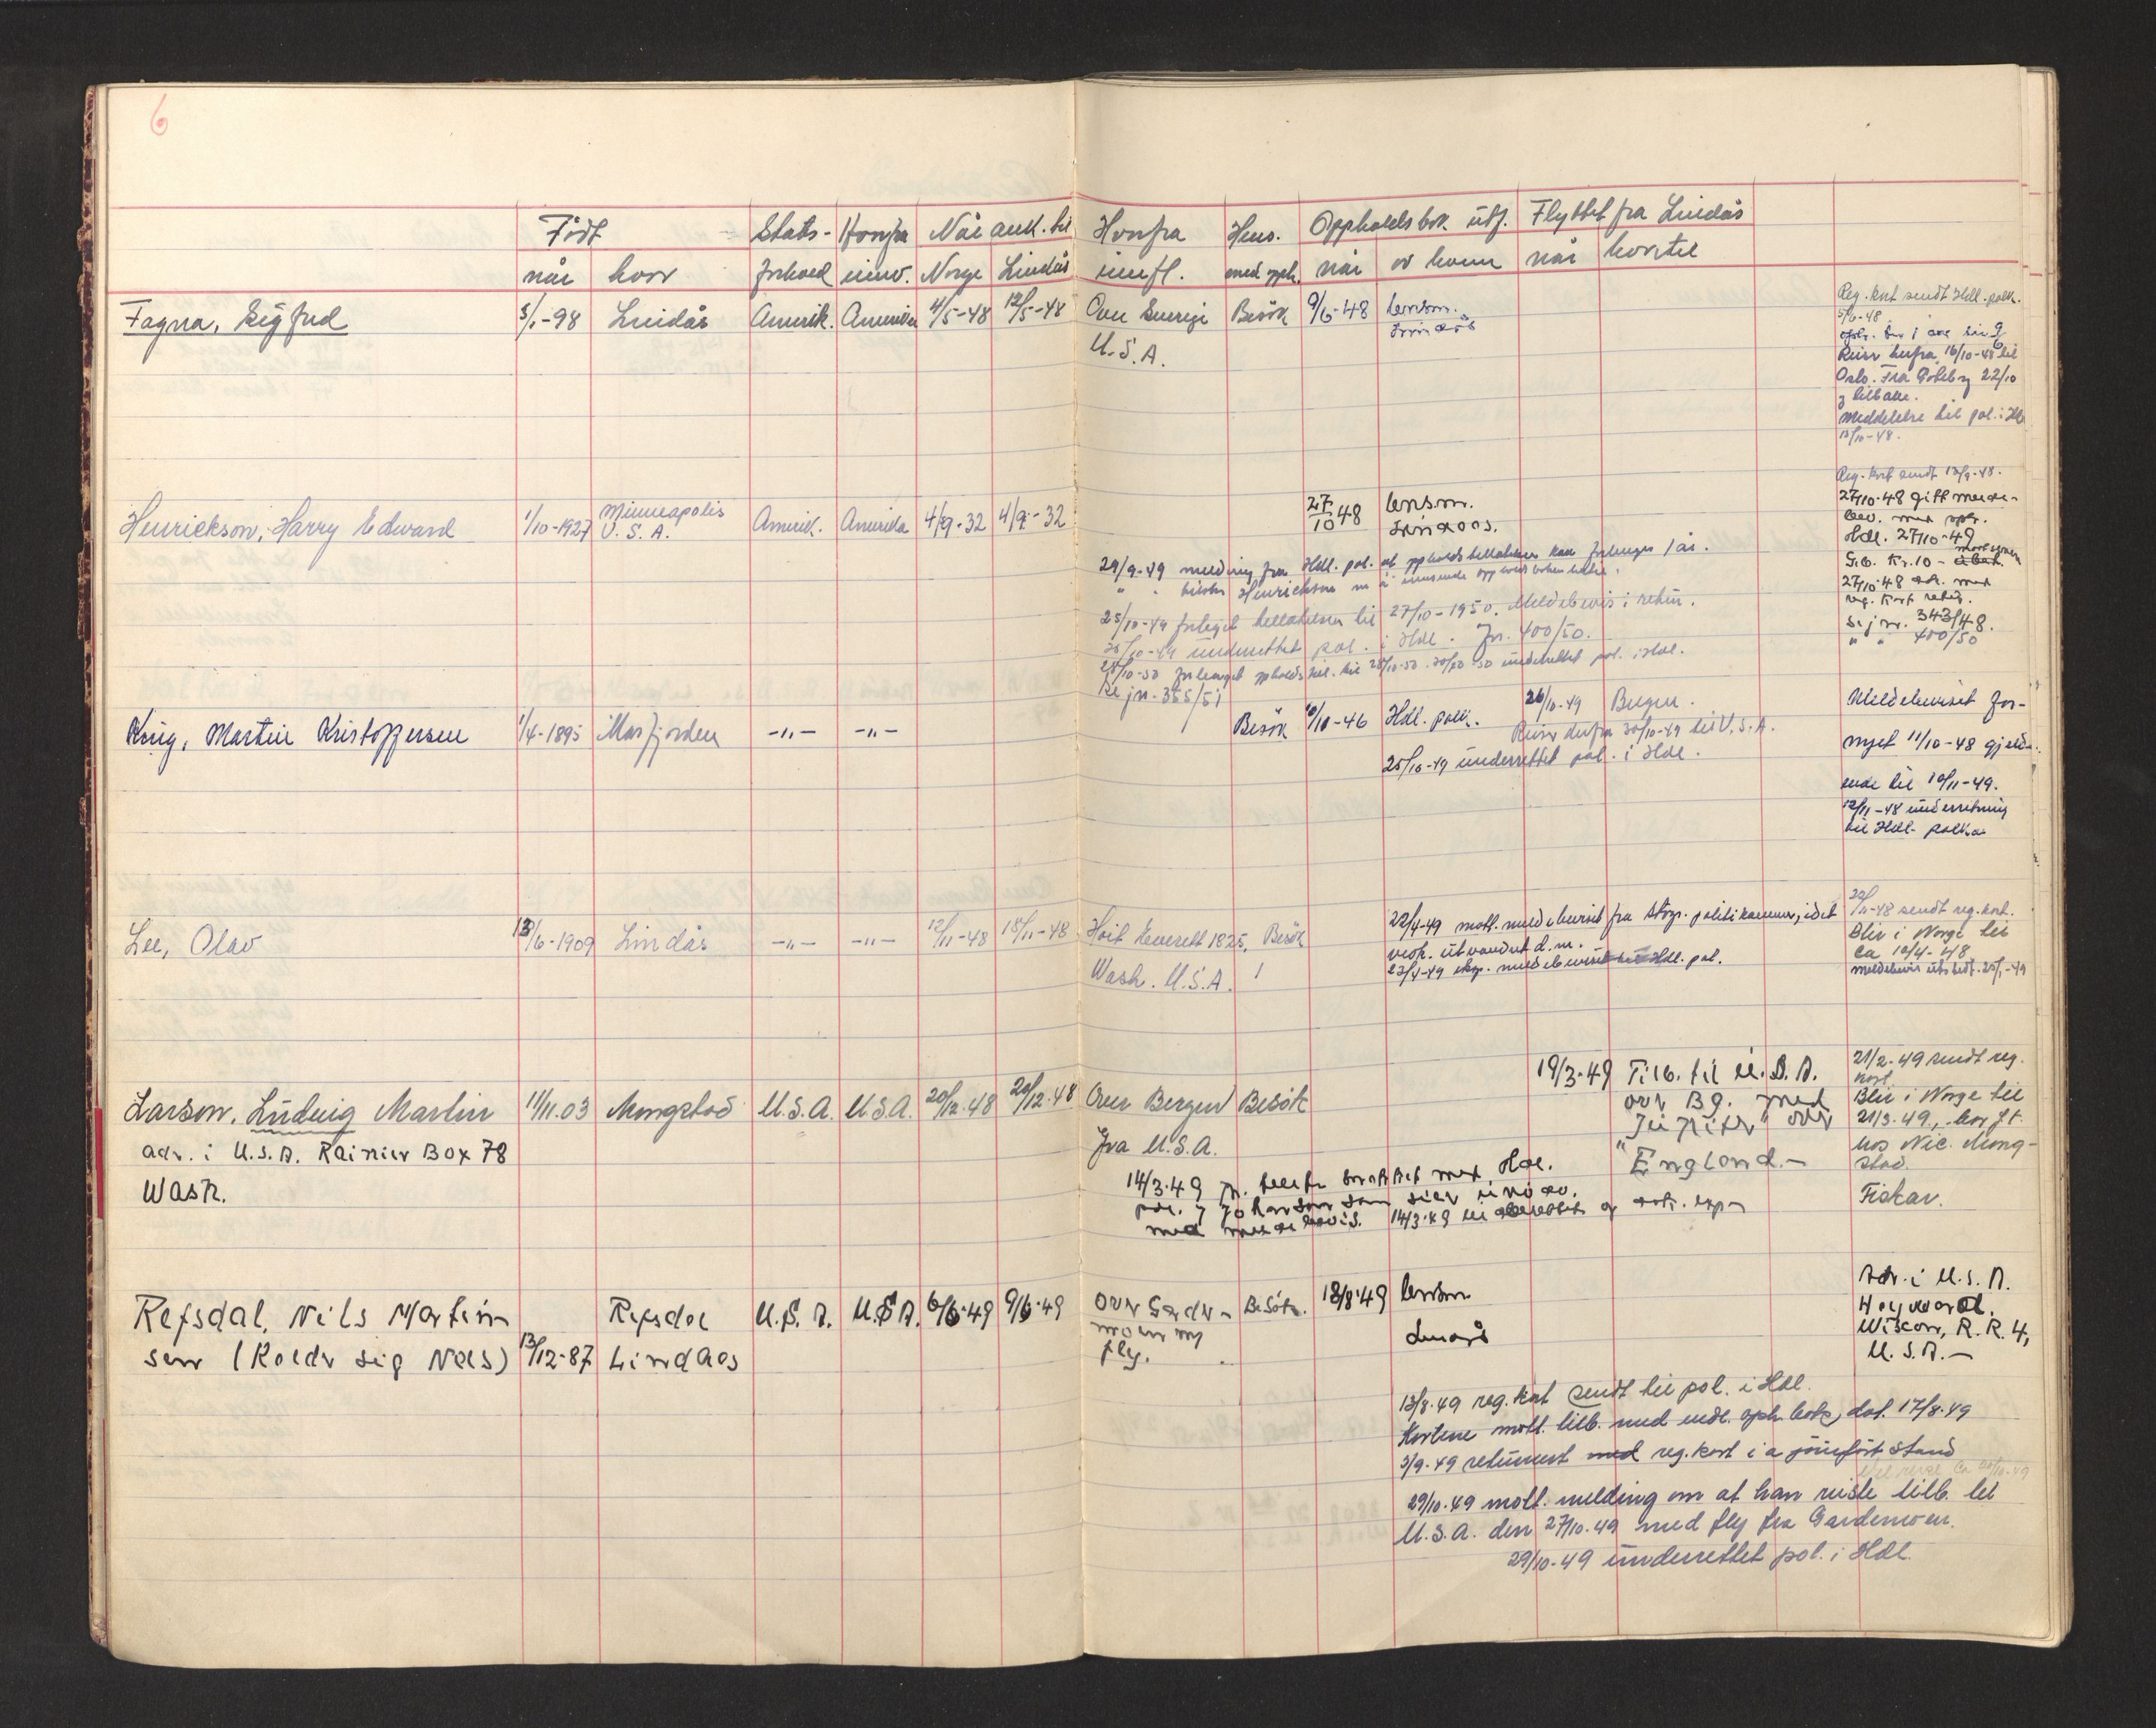 6
Født Stats- Hvorfra Når ank. til Hvorfra Hens. Oppholdsbok utf. Flyttet fra Lindås
når hvor forhold innv. Norge Lindås innfl. med opph. når av hvem når hvortil
Fagna, Sigfrid 5/1-98 Lindås Amerik. Amerika 4/5-48 12/5-48 Over Sverige Besök 9/6-48 lensm.
Lindås
U.S.A.
Reg. kort sendt Hdl. polk.
5/6-48
Reiser herfra 16/10-48 til
Oslo. Fra Göteborg 22/10
tilbake.
Meddelelse til pol. i Hdl
18/10-48.
Henrickson, Harry Edward 1/10-1927 Minneapolis Amerik. Amerika 4/9-32 4/9-32 27/10 48 lensm.
U.S.A. Lindaas.
Reg. kort sendt 13/9-48.
27/10-48 gitt melde-
bev. med
Hdl. 27/10-49
Geb. Kr. 10 -
27/10-48 med
reg. kort
Sj nr. 343/48.
" " 400/50
29/9-49 melding fra Hdl. pol. at oppholdstillatelsen kan forlenges 1 år.
" " Henrickson m å innsende oppholdsboken hertil.
25/10-49 forlenget tillatelsen til 27/10-1950. Meldebevis i retur.
25/10-49 underrettet pol. i Hdl. Jr. 400/50.
28/10-50 forlenget opholdstil. til 28/10-50. 30/10-50 underrettet pol. i Hdl.
Se jr. 355/51
King, Martin Kristoffersen 1/4-1895 Masfjorden -"- -"- Besök 10/10-46 Hdl. polk. 26/10-49 Bergen.
Reiser derfra 30/10-49 til U.S.A.
25/10-49 underrettet pol. i Hdl.
Meldebeviset for-
nyet 11/10-48 gjeld-
ende til 10/11-49.
12/11-48 underretning
til Hdl. polka
Lee, Olav 13/6-1909 Lindås -"- -"- 12/11-48 18/11-48 Hoit Everett 1825, Besök
Wash. U.S.A.
22/4-49 mott. meldebeviset fra Stvgr. politikammer, idet
vedk. utvandret d.m.
23/4-49 eksp. meldebeviset til Hdl. pol.
20/11-48 sendt reg. kort.
Blir i Norge til
ca 10/4-48
meldebevis utstedt 25/1-49
Larson, Ludvig Martin 11/11.03 Mongstad U.S.A. U.S.A. 20/12-48 20/12-48 Over Bergen Besök
adr. i U.S.A. Rainier Box 78 fra U.S.A.
Wash.
19/3-49 Tilb. til U.S.A.
over Bg. med
"Jupiter" over
England.-
21/2-49 sendt reg.
kort.
Blir i Norge til
21/3-49, bor f.t.
hos Nic. Mong-
stad.
Fiskar.
14/3-49 pr. telefon konferert med Hdl.
pol.
med meldebevis. 14/3-49
Refsdal, Nils Martin Refsdal U.S.A. U.S.A. 6/6-49 9/6-49 Over Garder- Besök. 13/8-49 lensm
sen (Kaldr sig Nels) 13/12-87 Lindaas moen m/ Lindås
fly.
Adr. i U.S.A.
Hayward.
Wiscon, R.R. 4,
U.S.A.-
13/8-49 reg. kort sendt til pol. i Hdl.
Kortene mott. tilb. med vedl. oph. bok, dat. 17/8-49
3/9-49 returnert med reg. kort i ajourført stand
Vil reise ca 20/10-49
29/10-49 mott. melding om at han reiste tilb. til
U.S.A. den 27/10-49 med fly fra Gardemoen.
29/10-49 underrettet pol. i Hdl.